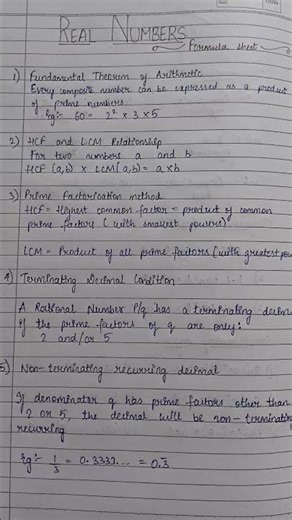 REAL NUMBERS
Formula sheet
1) Fundamental Theorem of Arithmetic
Every composite number can be expressed as a product
of prime numbers.
Eg:- 60 = 2² × 3 × 5
2) HCF and LCM Relationship
For two numbers a and b
HCF (a,b) × LCM(a,b) = a×b
3) Prime Factorisation method
HCF = Highest common factor = product of common
prime factors (with smallest powers)
LCM = Product of all prime factors (with greatest
4) Terminating Decimal Condition
A Rational Number P/q has a terminating
if the prime factors of q are only:
2 and/or 5
5) Non-terminating recurring decimal
If denominator q has prime factors other than
2 or 5, the decimal will be non-terminating
recurring
Eg:- 1/3 = 0.3333... = 0.3̅